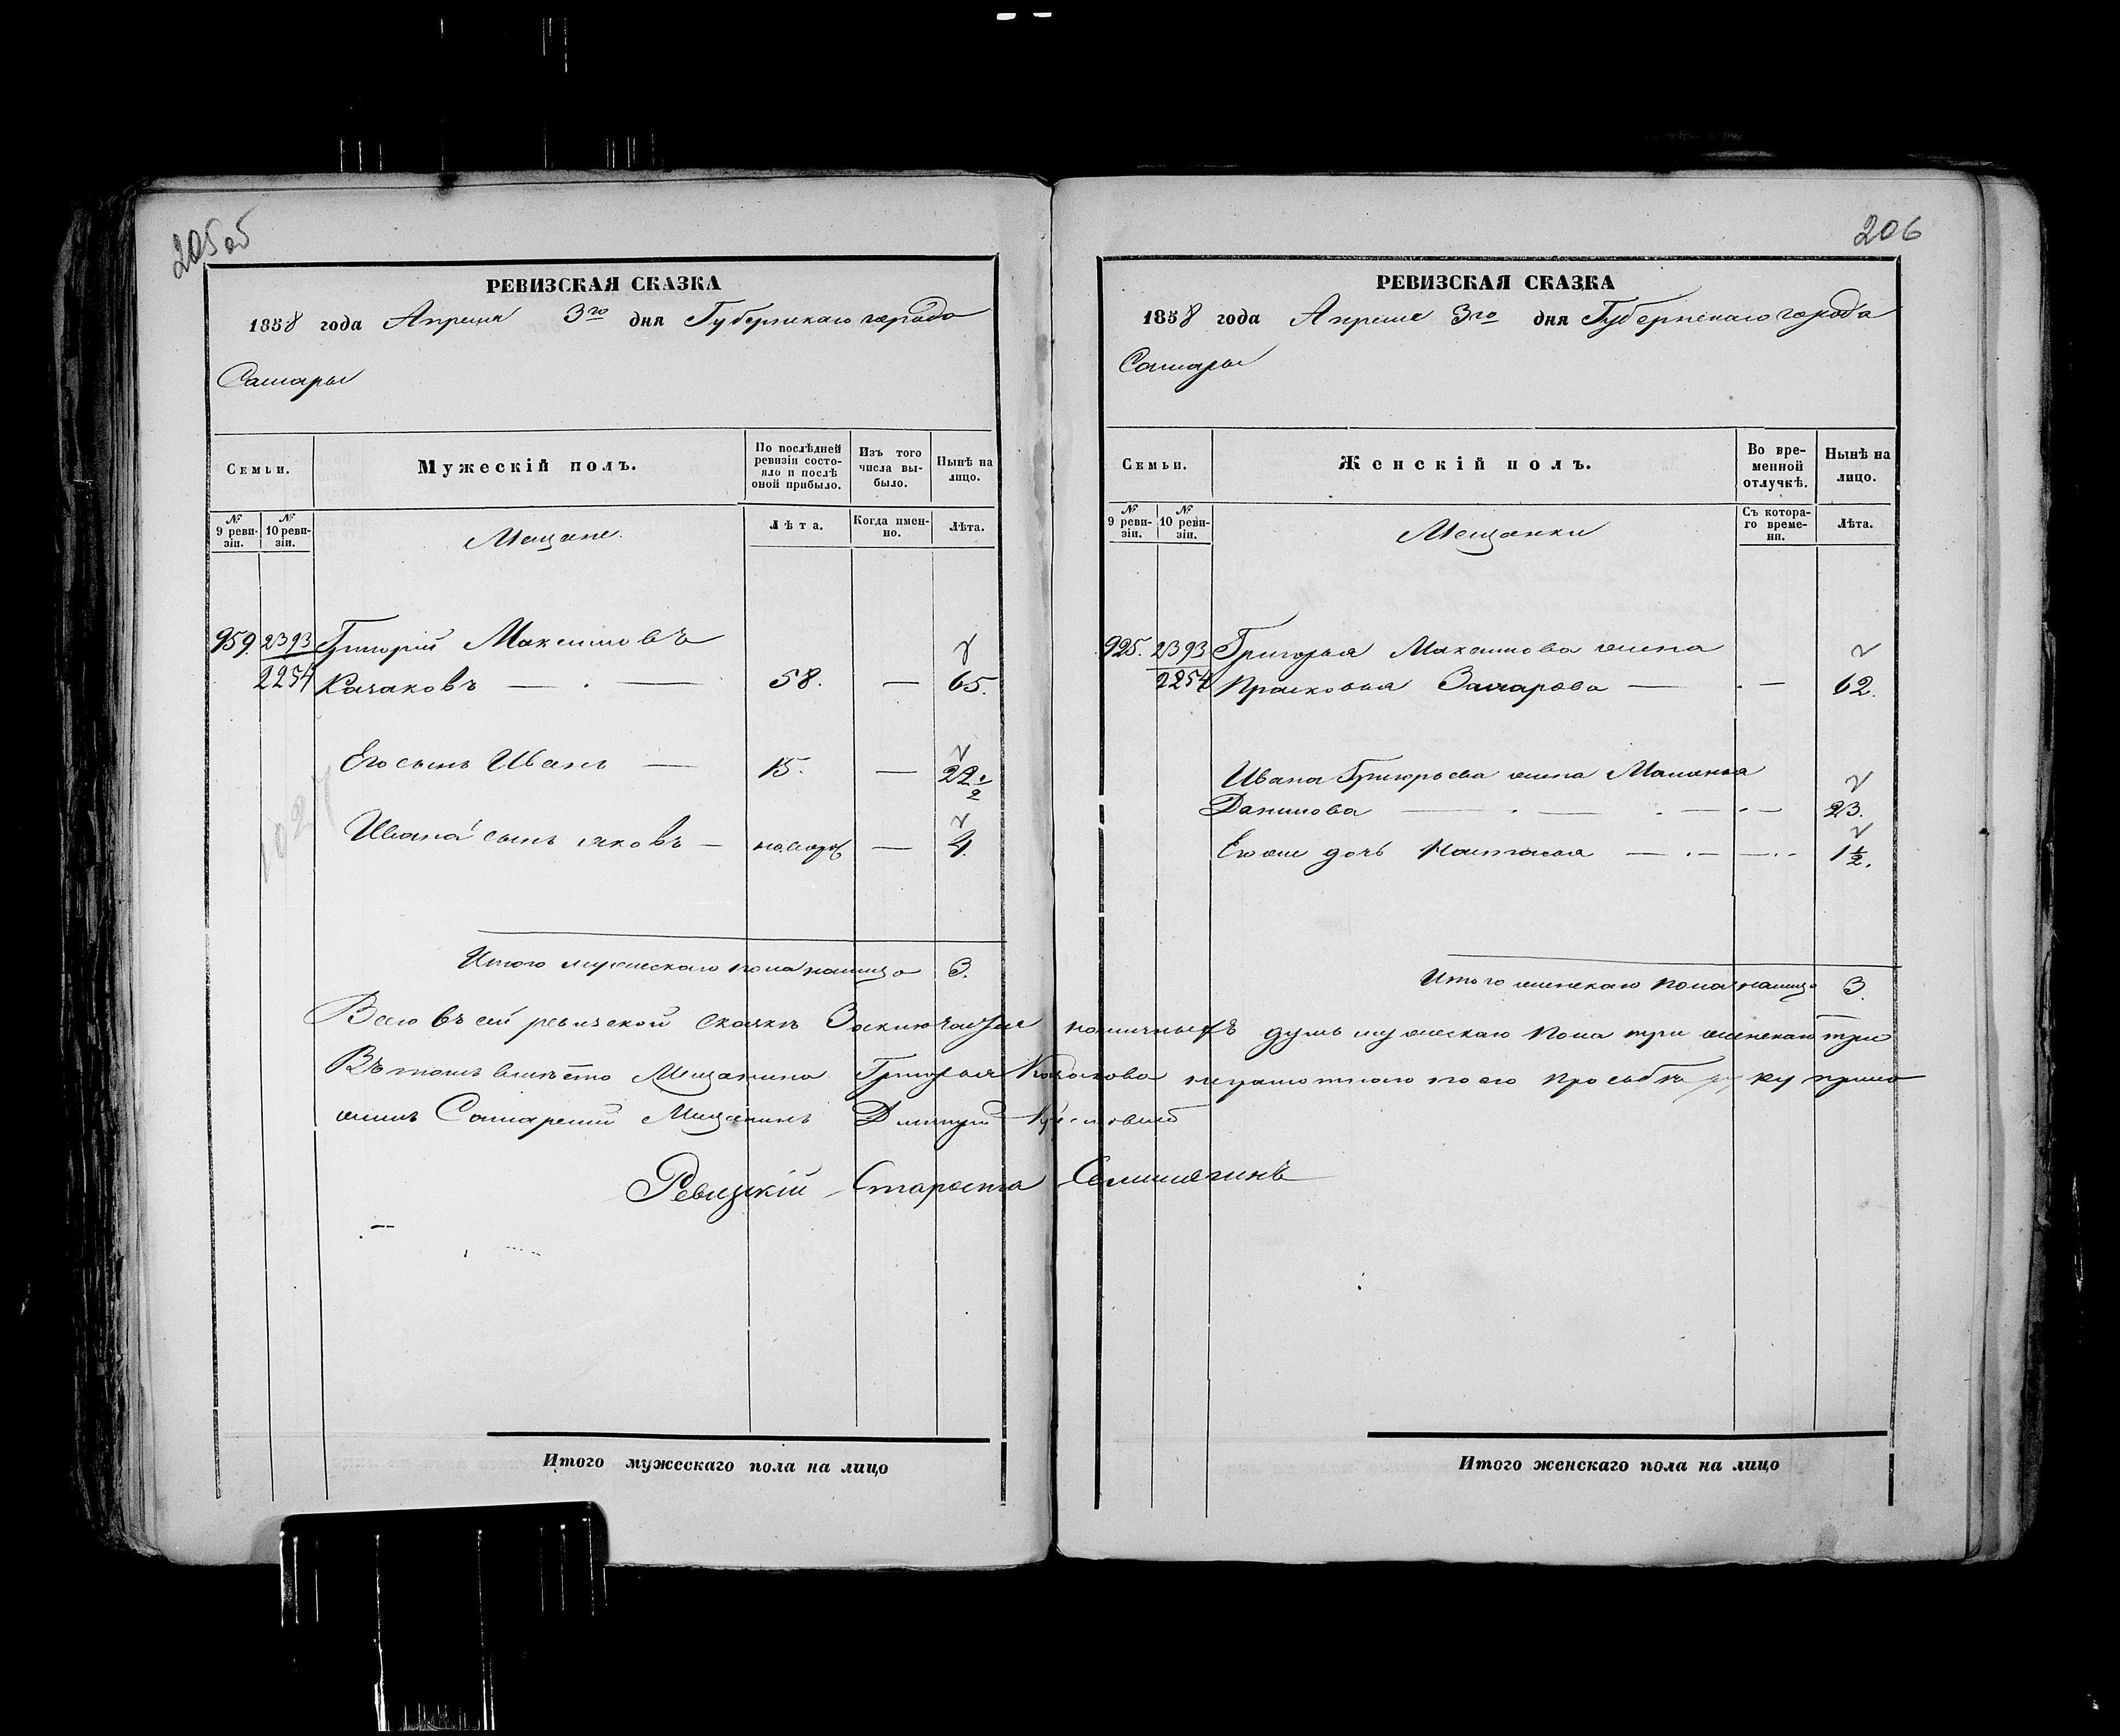 205 об
РЕВИЗСКАЯ СКАЗКА
1858 года Апреля 3го дня Губернскаго города
Самары
Семьи.
Мужескій полъ.
По послѣдней ревизіи состо-
яло и послѣ оной прибыло.
Изъ того числа вы-
было.
Нынѣ на лицо.
№ 9 реви-
зіи.
№ 10 реви-
зіи.
Мещане.
Лѣта.
Когда имен-
но.
Лѣта.
959. 2393 Григорій Максимовъ
2254 Казаковъ — . — 58. — 65.
Его сынъ Иванъ — 15. — 22 1/2
Ивана сынъ Яковъ — новорож — 4.
Итого мужескаго пола налицо 3.
206
РЕВИЗСКАЯ СКАЗКА
1858 года Апреля 3го дня Губернскаго города
Самары
Семьи.
Женскій полъ.
Во вре-
менной отлучкѣ.
Нынѣ на лицо.
№ 9 реви-
зіи.
№ 10 реви-
зіи.
Мещанки
Съ котора-
го време-
ни.
Лѣта.
925. 2393 Григорья Максимова жена
2254 Прасковья Захарова — . — 62.
Ивана Григорьева жена Маланья
Данилова — . — . — . — 23.
Его же дочь Настасья — . — — . . 1 1/2.
Итого женскаго пола налицо 3.
Всего въ сей ревизской сказкѣ Заключается наличныхъ душъ мужескаго пола три женскаго три
Въ томъ вмѣсто Мещанина Григорья Казакова неграмотнаго по его прозьбѣ руку прило
жилъ Самарский Мещанинъ Дмитрий
Ревизскій Староста
Итого мужескаго пола на лицо
Итого женскаго пола на лицо